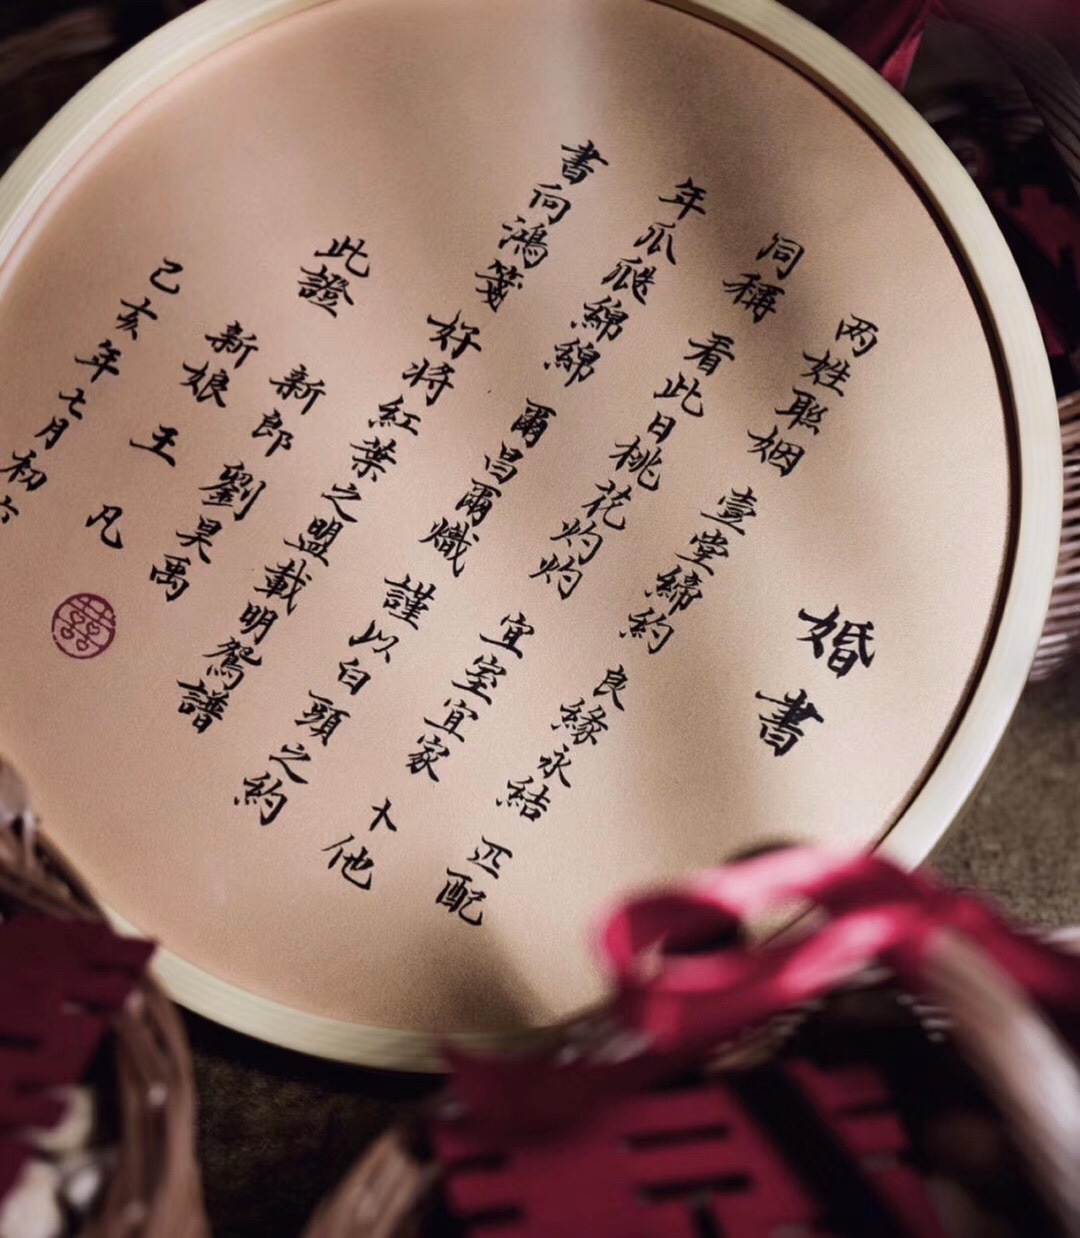 婚書
两姓聯姻 壹堂締約 良緣永結 匹配
同稱 看此日桃花灼灼 宜室宜家 卜他
年瓜瓞綿綿 爾昌爾熾 謹以白頭之約
書向鴻箋 好將紅葉之盟載明鴛譜
此證
新郎 劉昊禹
新娘 王凡
己亥年七月初六
囍